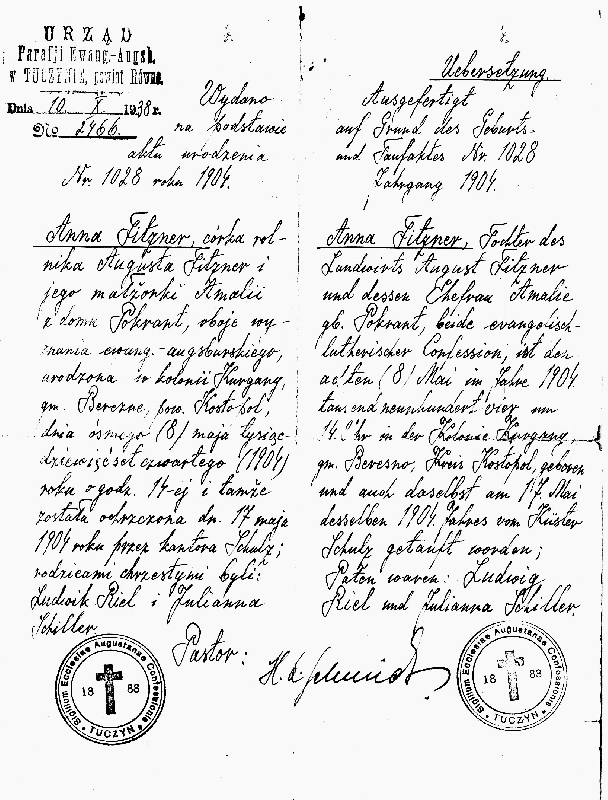 URZĄD
Parafji Ewang.-Augsb.
w TUCZYNIE, powiat Równe.
Dnia 10 X 1938 r.
No 2466.
Wydano
na podstawie
aktu urodzenia
Nr. 1028 roku 1904.
Anna Fitzner, córka rol-
nika Augusta Fitzner i
jego małżonki Amalii
z domu Pokrant, oboje wy-
znania ewang.-augsburskiego,
urodzona w kolonii Kurgang,
gm. Berezne, pow. Kostopol,
dnia ósmego (8) maja tysiąc
dziewięćset czwartego (1904)
roku o godz. 14-ej i tamże
została ochrzczona dn. 17 maja
1904 roku przez kantora Schulz;
rodzicami chrzestymi byli:
Ludwik Riel i Julianna
Schiller
Uebersetzung.
Ausgefertigt
auf Grund des Geburts-
und Taufaktes Nr. 1028
Jahrgang 1904.
Anna Fitzner, Tochter des
Landwirts August Fitzner
und dessen Ehefrau Amalie
gb. Pokrant, beide evangelisch-
lutherischer Confession, ist den
achten (8) Mai im Jahre 1904
tausend neunhundert vier um
14 Uhr in der Kolonie Kurgang,
gm. Beresno, Kreis Kostopol, geboren
und auch daselbst am 17. Mai
desselben 1904 Jahres vom Küster
Schulz getauft worden;
Paten waren: Ludwig
Riel und Julianna Schiller.
Pastor:
Sigillum Ecclesiae Augustanae Confessionis
18 83
TUCZYN
Sigillum Ecclesiae Augustanae Confessionis
18 83
TUCZYN